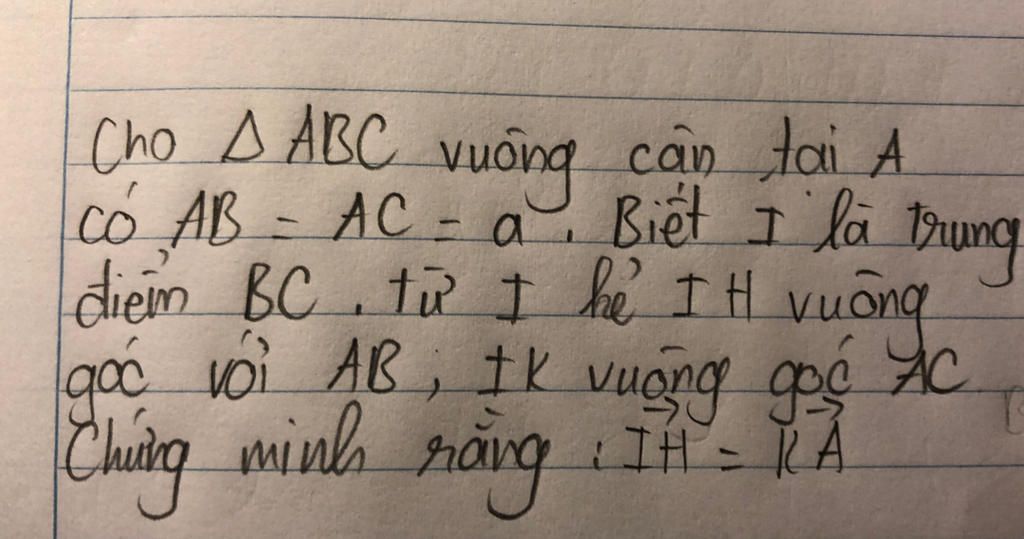 Cho Δ ABC vuông cân tại A
có AB = AC = a. Biết I là trung
điểm BC. từ I kẻ IH vuông
góc với AB; IK vuông góc AC
Chứng minh rằng : $\overrightarrow{IH}$ = $\overrightarrow{KA}$